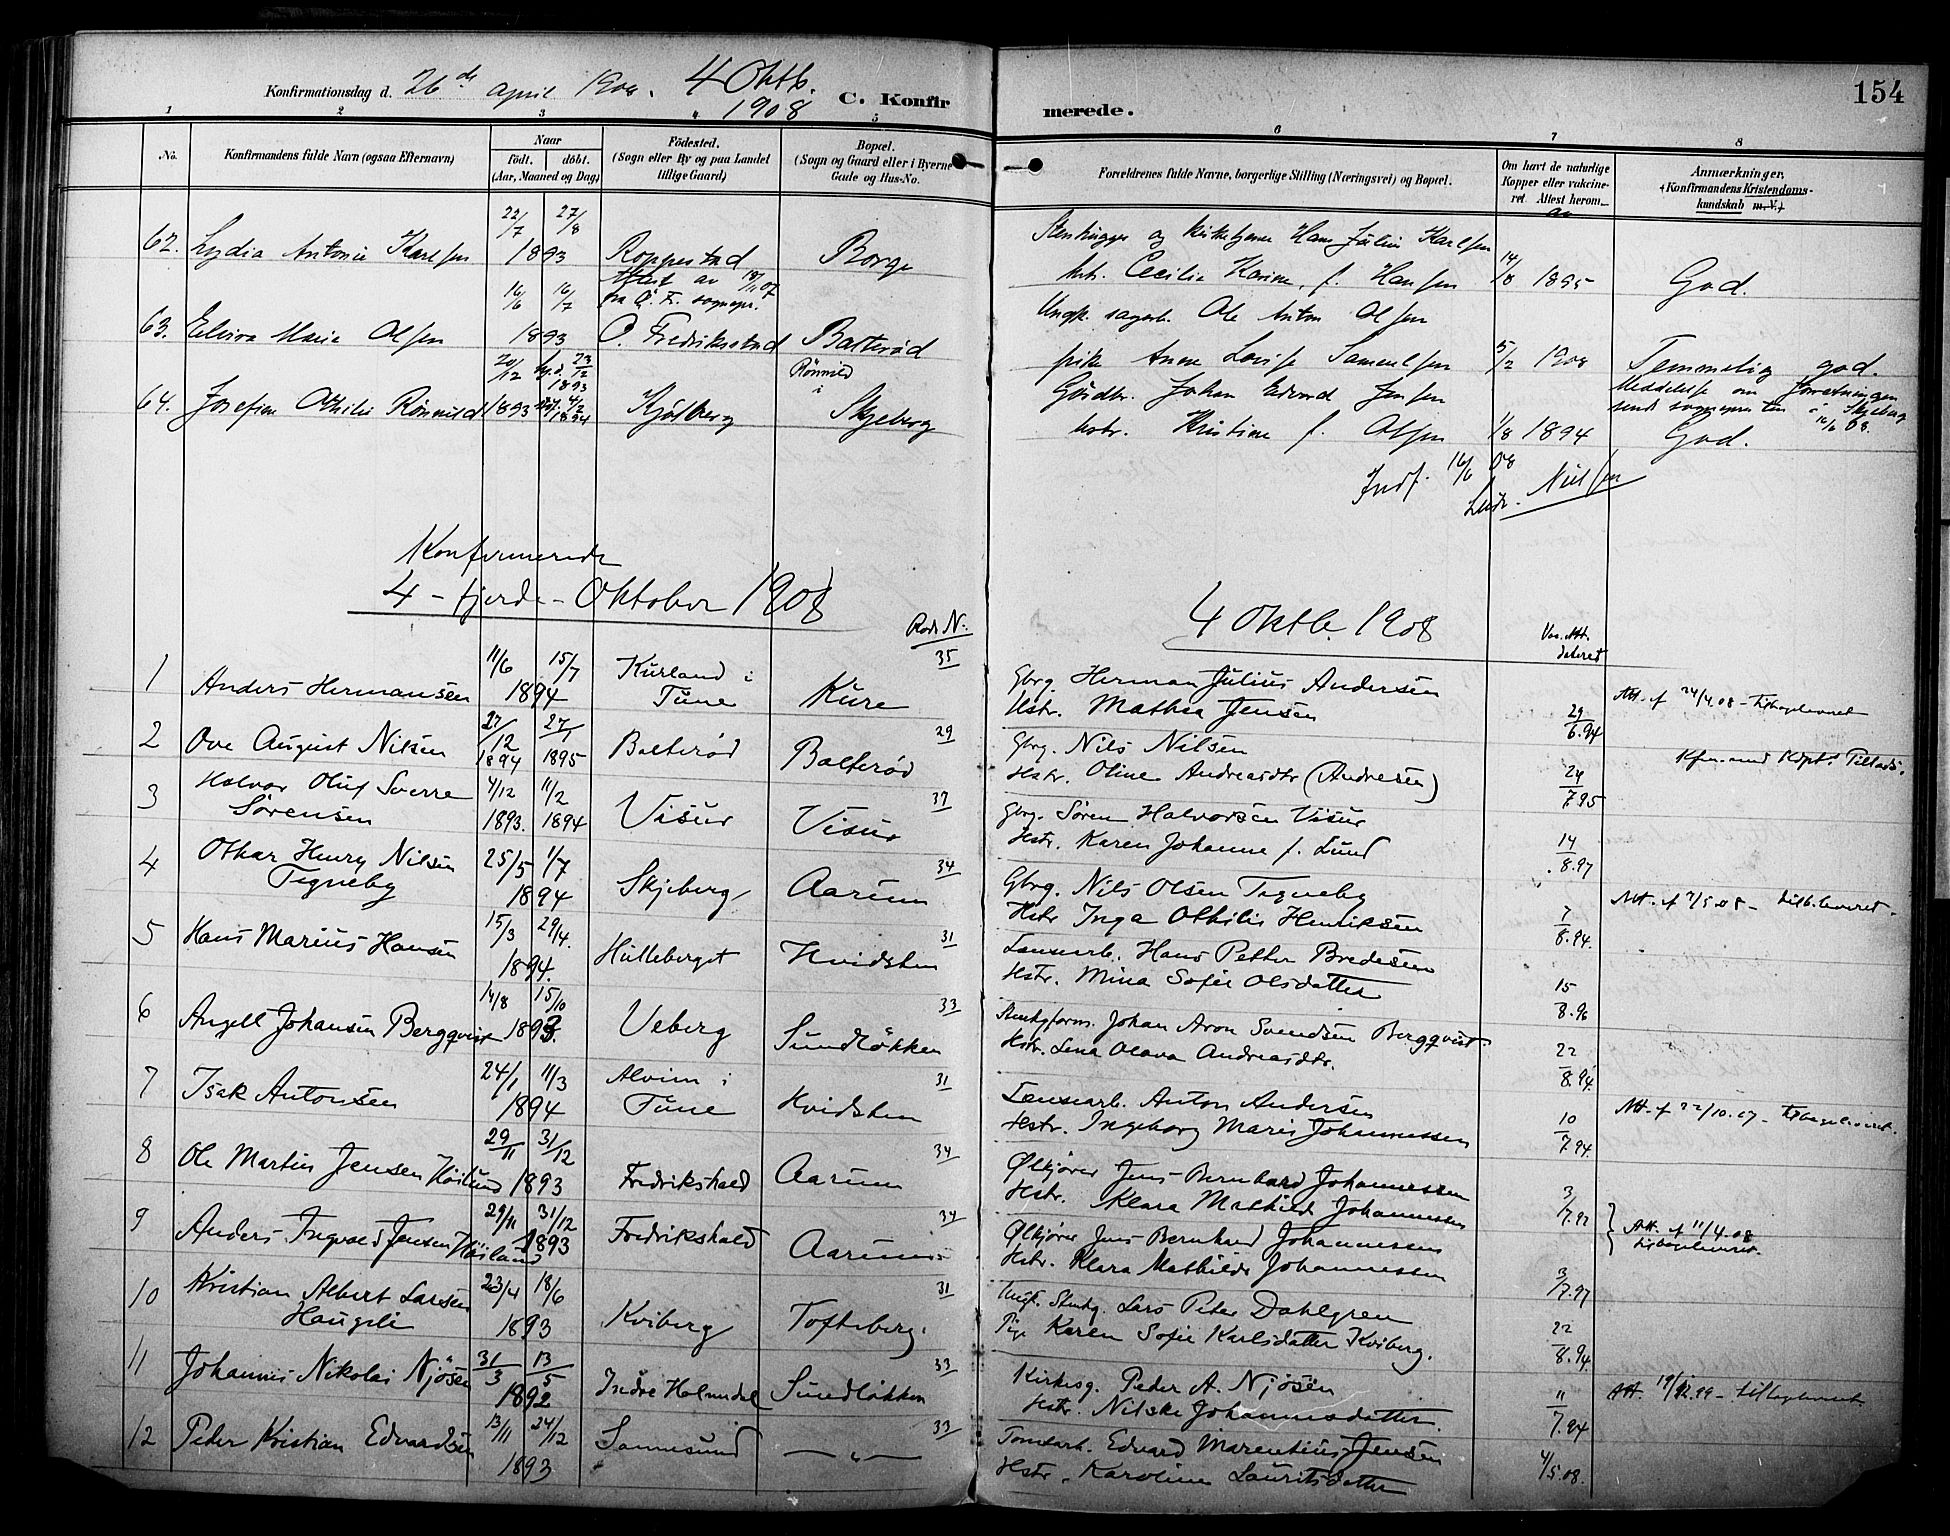 154
Konfirmationsdag d. 26de april 1908. 4 Oktb. 1908 C. Konfirmerede.
1 2 3 4 5 6 7 8
No. Konfirmandens fulde Navn (ogsaa Efternavn) Naar født. døbt. (Aar, Maaned og Dag) Fødested. (Sogn eller By og paa Landet tillige Gaard) Bopæl. (Sogn og Gaard eller i Byerne Gade og Hus-No. Forældrenes fulde Navne, borgerlige Stilling (Næringsvei) og Bopæl. Om havt de naturlige Kopper eller vakcineret. Attest herom Anmærkninger. (Konfirmandens Kristendomskundskab m.V.)
22/7 27/8
62. Lydia Antonie Karlsen 1893 Roppestad Borge Stenhugger og kirketjener Hans Julius Karlsen
Attest av 18/11 07 fra Ö. F. sognepr.
hstr. Cecilia Karine, f. Hansen 14/8 1895 God.
16/6 16/7
63. Elvira Marie Olsen 1893 O. Fredriksstad Balterød Ungk. sagarb. Ole Anton Olsen
pike Anne Lovise Samuelsen 5/2 1908 Temmelig god.
20/12 hj.d. 23/12 1893
64. Josefine Othilie Rönnild 1893 4/2 1894 Kjølberg Rønnild i Skjeberg Gårdbr. Johan Edvard Jensen
Meddelelse om Forretningen sendt sognepresten i Skjeberg 16/6 08.
hstr. Kristine f. Olsen 1/8 1894 God.
Indf. 16/6 08
Nielsen
Konfirmerede
4 - fjerde - Oktober 1908
4 Oktb. 1908
Rode N.
Vac. Att. dateret
1 Anders Hermansen 11/6 15/7 1894 Kurland i Tune Kure 35 Gbrg. Herman Julius Andersen
Hstr. Mathea Jensen 29/6.94 Att. af 24/4.08 - tilbageleveret
2 Ove August Nilsen 27/12 1894 27/1 1895 Balterød Balterød 29 Gbrg. Nils Nilsen
Hstr. Oline Andreasdtr (Andresen) 24/7.95 Kfm. med Kdpt.s Tillads.
3 Halvor Oluf Sverre Sørensen 4/12 1893. 11/2 1894 Visur Visur 37 Gbrg. Søren Halvorsen Visur
Hstr. Karen Johanne f. Lund 14/8.97
4 Othar Henry Nilsen Tegneby 25/5 1/7 1894 Skjeberg Aarum 34 Gbrg. Nils Olsen Tegneby
Hstr Inga Othilie Henriksen 7/8.94. Att. af 7/5.08 - tilb.leveret.
5 Hans Marius Hansen 15/3 29/4. 1894. Hulleberget Hvidsten 31 Løsearb. Hans Petter Bredesen
Hstr. Mina Sofie Olsdatter 15/8.96
6 Angell Johansen Bergqvist 14/8 15/10 1893. Veberg Sundløkken 33 Stenhgform. Johan Aron Svendsen Bergqvist.
Hstr. Lena Olava Andreasdtr. 22/8.94.
7 Isak Antonsen 24/1 11/3 1894 Alvim i Tune Hvidsten 31 Løsearb. Anton Andersen
Hstr. Ingeborg Marie Johannessen 10/7.94. Att. af 22/10.07 - tilbageleveret.
8 Ole Martin Jensen Høilund 29/11 31/12 1893 Fredrikshald Aarum 34 Ølkjører Jens Bernhard Johannessen
Hstr. Klara Mathilde Johannessen 3/7.97
9 Anders Ingvald Jensen Høiland 29/11 31/12 1893 Fredrikshald Aarum 34 Ølkjører Jens Bernhard Johannessen
Hstr. Klara Mathilde Johannessen 3/7.97 Att. af 11/4.08 tilbageleveret.
10 Kristian Albert Larsen Haugeli 23/4 18/6 1893 Kviberg Tofteberg. 31 Ungk. Stenhg. Lars Peter Dahlgren
Pige Karen Sofie Karlsdatter Kviberg. 22/8.94.
11 Johannes Nikolai Njøsen 31/3 13/5 1892 Indre Holmedal Sundløkken 33 Kirkesg. Peder A. Njøsen
Hstr. Nilske Johannesdatter 11/7.94 Att. 19/12.99 - tilbageleveret
12 Peder Kristian Edvardsen 13/11 24/12 1893 Sannesund — „ — 33 Tomtearb. Edvard Marentius Jensen
Hstr. Karoline Lauritsdatter 4/5.08.